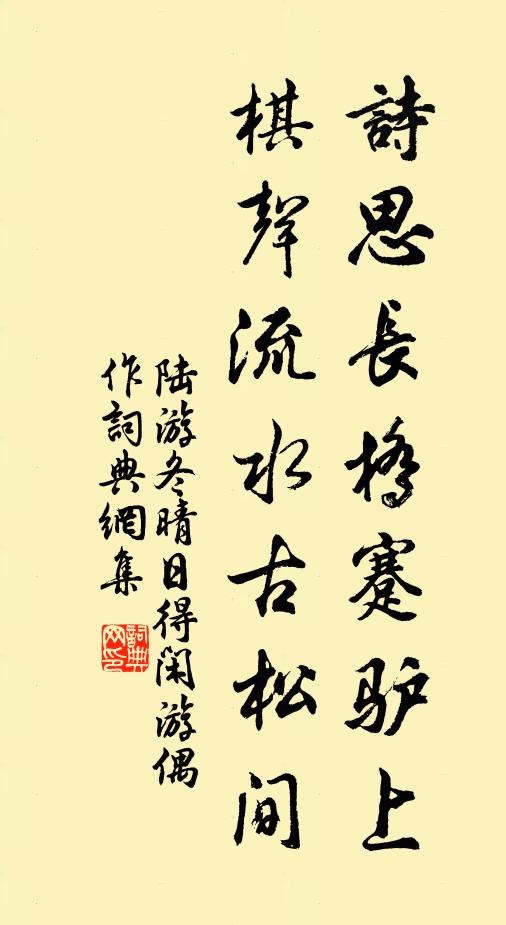 詩思長橋蹇驴上
棋聲流水古松间
陆游冬晴日得闲游偶
作詞典網集
詞典網印